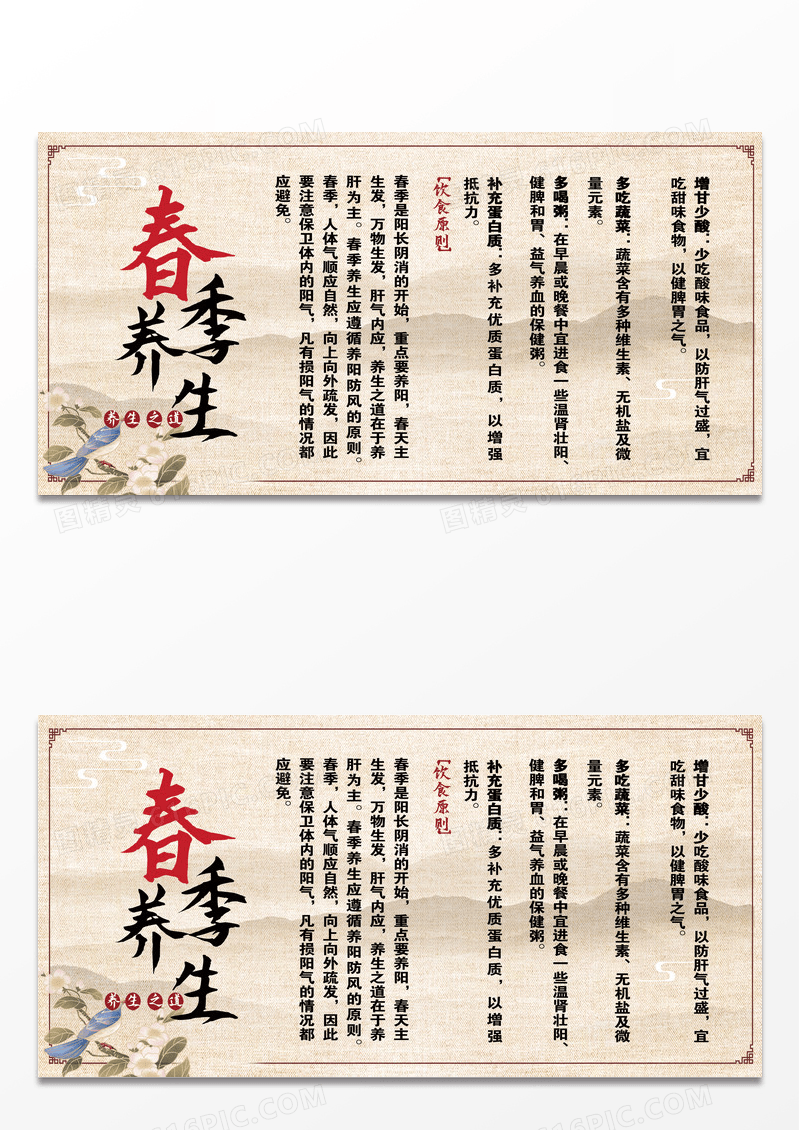 春季养生
养生之道
春季是阳长阴消的开始，重点要养阳，春天主
生发，万物生发，肝气内应，养生之道在于养
肝为主。春季养生应遵循养阳防风的原则。
春季，人体气顺应自然，向上向外疏发，因此
要注意保卫体内的阳气，凡有损阳气的情况都
应避免。
【饮食原则】
补充蛋白质：多补充优质蛋白质，以增强
抵抗力。
多喝粥：在早晨或晚餐中宜进食一些温肾壮阳、
健脾和胃、益气养血的保健粥。
多吃蔬菜：蔬菜含有多种维生素、无机盐及微
量元素。
增甘少酸：少吃酸味食品，以防肝气过盛，宜
吃甜味食物，以健脾胃之气。
春季养生
养生之道
春季是阳长阴消的开始，重点要养阳，春天主
生发，万物生发，肝气内应，养生之道在于养
肝为主。春季养生应遵循养阳防风的原则。
春季，人体气顺应自然，向上向外疏发，因此
要注意保卫体内的阳气，凡有损阳气的情况都
应避免。
【饮食原则】
补充蛋白质：多补充优质蛋白质，以增强
抵抗力。
多喝粥：在早晨或晚餐中宜进食一些温肾壮阳、
健脾和胃、益气养血的保健粥。
多吃蔬菜：蔬菜含有多种维生素、无机盐及微
量元素。
增甘少酸：少吃酸味食品，以防肝气过盛，宜
吃甜味食物，以健脾胃之气。